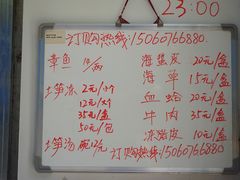 23:00
订购热线:15060766880
章鱼 10/两
土笋冻 2元/个
12元/斤
35元/盒
50元/包
土笋汤 碗12元
海蜇皮 20元/盒
海单 15元/盒
血蛤 20元/盒
牛肉 35元/盒
冻猪皮 10元/盒
订购热线:15060766880